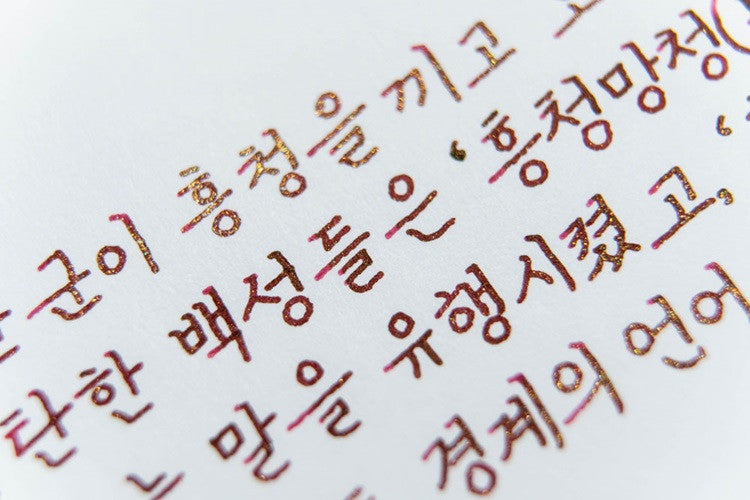 군이 흥청을 끼고
탄한 백성들은 ‘흥청망청(
는 말을 유행시켰고,
경계의 언어